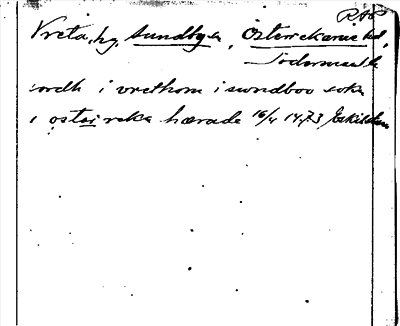 RAP
Vreta, hg, Sundbyn, Österrekarne hd,
Södermanl
jordh i vrethom i swndboo sokn
i osterreka hærade 16/4 1473 Eskilstuna